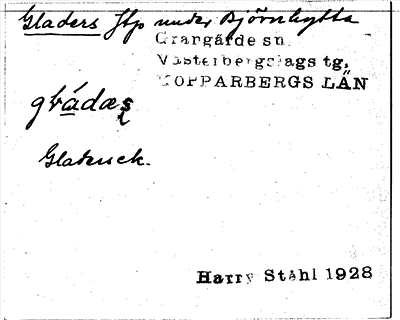 Gladers ftp under Björnhytta
Grangärde sn.
Västerbergslags tg.
KOPPARBERGS LÄN
Gladerıck.
Harry Ståhl 1928